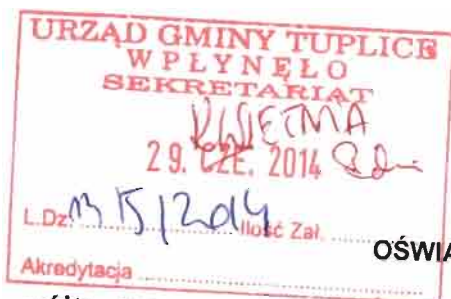 URZĄD GMINY TUPLICE
WPŁYNĘŁO
SEKRETARIAT
KWIETNIA
29. CZE. 2014
L.Dz. 1315/2014 Ilość Zał. ..........
OŚWIA
Akredytacja ..........